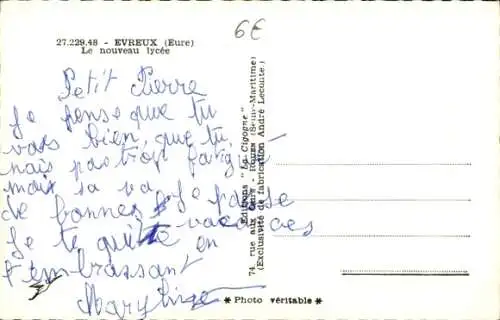 6€
27.229.48 - EVREUX (Eure)
Le nouveau lycée
Petit Pierre
Je pense que tu
vas bien, que tu
pas trop
mais sa va Je passe
de bonnes vacances
Je te quitte en
t'embrassant
Editions "La Cigogne"
74, rue aux - ROUEN (Seine-Maritime)
(Exclusivité de fabrication André Leconte.)
* Photo véritable *